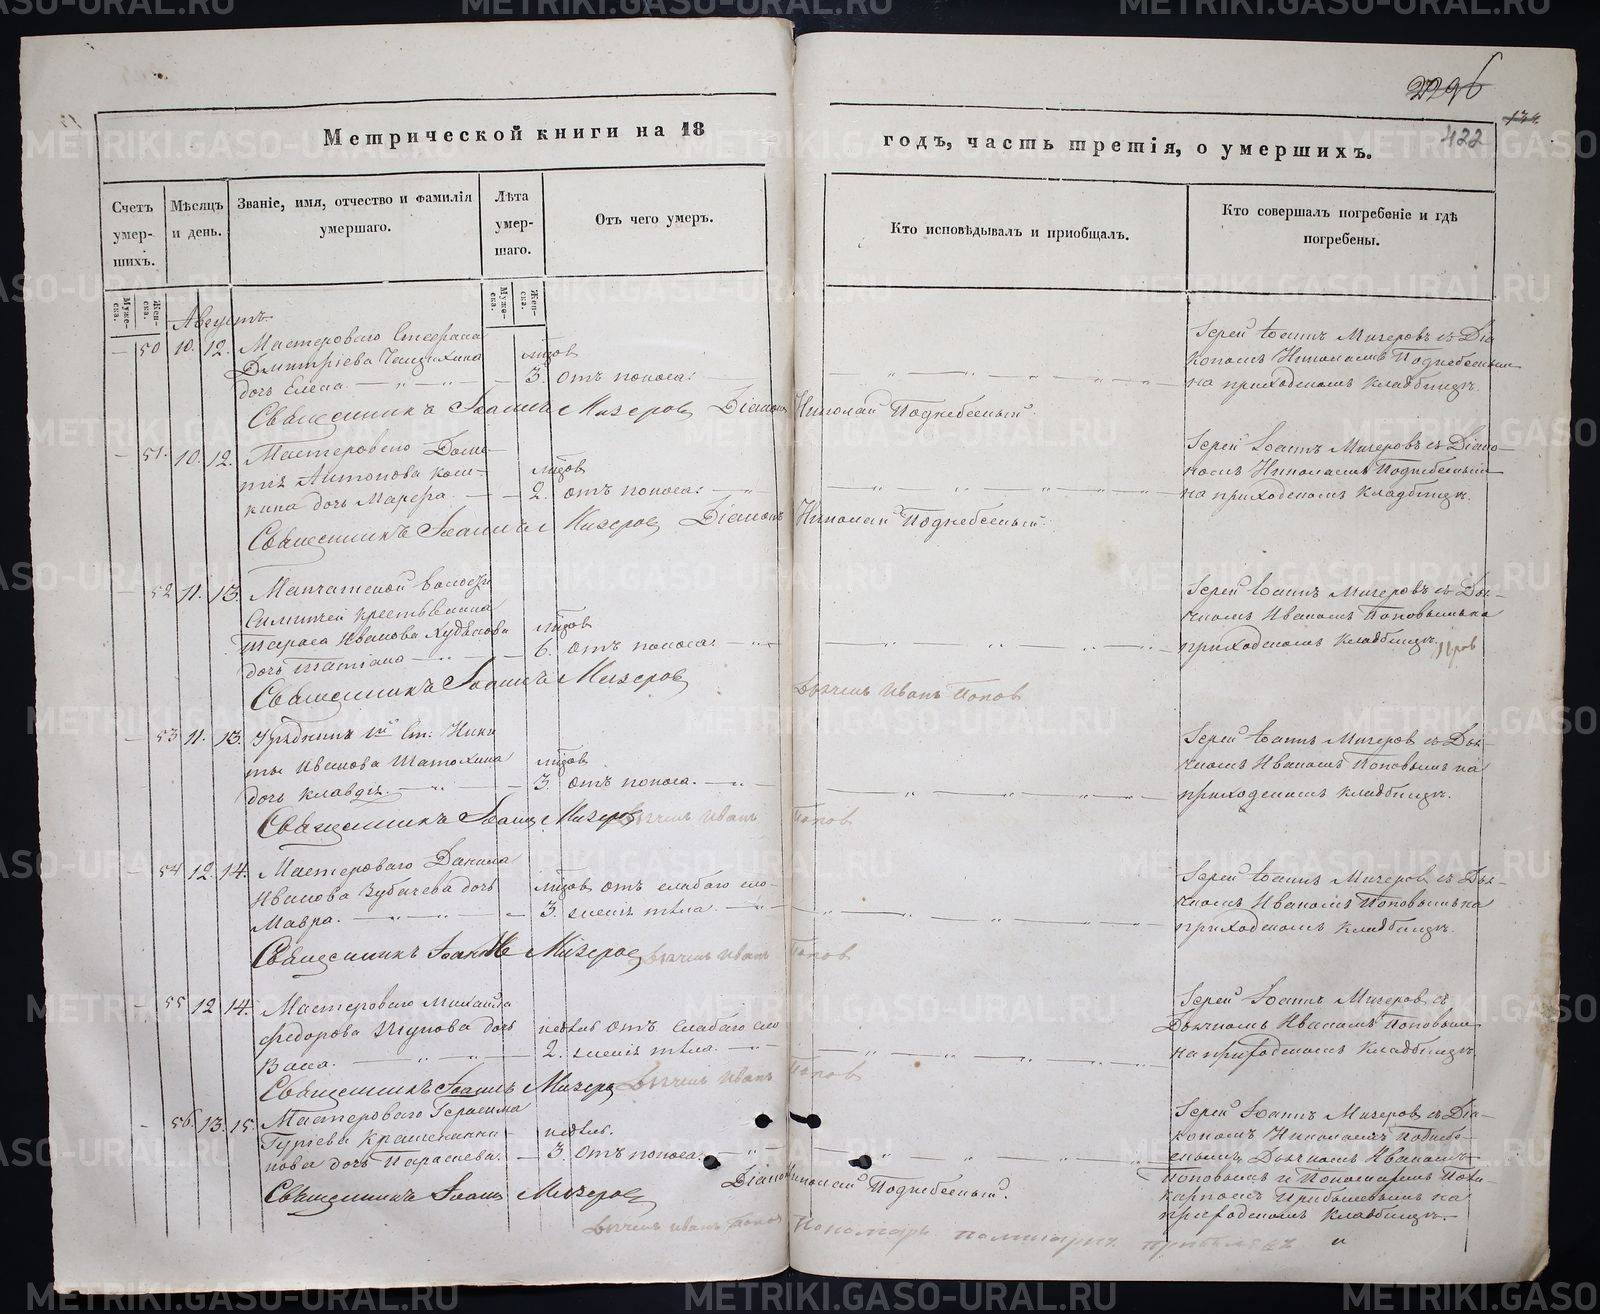 2296
134.
422
Метрической книги на 18
годъ, часть третія, о умершихъ.
Счетъ умер-шихъ.
Мѣсяцъ и день.
Званіе, имя, отчество и фамилія умершаго.
Лѣта умер-шаго.
Отъ чего умеръ.
Кто исповѣдывалъ и пріобщалъ.
Кто совершалъ погребеніе и гдѣ погребены.
Муже-ска.
Жен-ска.
Муже-ска.
Жен-ска.
Августъ
50 10. 12. Мастероваго Стефана
Дмитріева
дочь Елена.
лѣтов
3. отъ поноса.
Іерей Іоаннъ Мизеровъ съ Діа
кономъ Николаемъ Поднебеснымъ
на приходскомъ кладбищѣ.
Священникъ Іоаннъ Мизеровъ Діаконъ Николай Поднебесный.
51. 10. 12. Мастероваго Доме-
нтія Антонова
дочь Марѳа.
лѣтов
2. отъ поноса.
Іерей Іоаннъ Мизеровъ съ Діако-
номъ Николаемъ Поднебеснымъ
на приходскомъ кладбищѣ.
Священникъ Іоаннъ Мизеровъ Діаконъ Николай Поднебесный.
52 11. 13. волости
крестьянина
Тараса Иванова Худякова
дочь Татіана
лѣтов
6. отъ поноса.
Іерей Іоаннъ Мизеровъ съ Дья-
чкомъ Иваномъ Поповымъ на
приходскомъ кладбищѣ.
Священникъ Іоаннъ Мизеровъ Дьячекъ Иванъ Попов
53 11. 13. Урядника ст. Ники
ты Иванова
дочь Клавдія.
лѣтов
3. отъ поноса.
Іерей Іоаннъ Мизеров съ Дья-
чкомъ Иваномъ Поповымъ на
приходскомъ кладбищѣ.
Священникъ Іоаннъ Мизеровъ Дьячекъ Иванъ Попов
54 12. 14. Мастероваго Данила
Иванова Зубачева дочь
Мавра.
лѣтов отъ слабаго сло-
3. женія тѣла.
Іерей Іоаннъ Мизеров съ Дья-
чкомъ Иваномъ Поповымъ на
приходскомъ кладбищѣ.
Священникъ Іоаннъ Мизеровъ Дьячекъ Иванъ Попов
55 12 14. Мастероваго Михайла
Федорова дочь
Васса.
недѣль отъ слабаго сло
2. женія тѣла.
Іерей Іоаннъ Мизеров съ
Дьячкомъ Иваномъ Поповымъ
на приходскомъ кладбищѣ.
Священникъ Іоаннъ Мизеров Дьячекъ Иванъ Попов
56. 13. 15. Мастероваго Герасима
Гуріева Крашенинни-
кова дочь Параскева.
недѣль.
3. отъ поноса.
Іерей Іоаннъ Мизеров съ Діа-
кономъ Николаемъ Поднебе-
снымъ, Дьячкомъ Иваномъ
Поповымъ и Пономаремъ Поли-
карпомъ Прибылевымъ на
приходскомъ кладбищѣ.
Священникъ Іоаннъ Мизеровъ Діаконъ Николай Поднебесный.
Дьячекъ Иванъ Попов Пономарь Поликарпъ Прибылевъ
METRIKI.GASO-URAL.RU